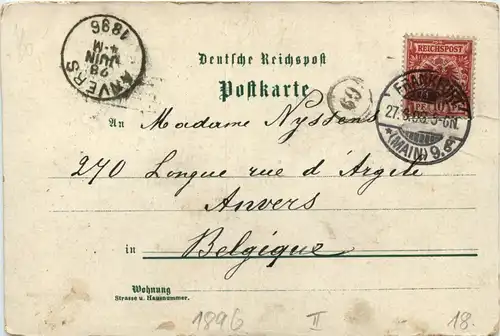 ANVERS
28
JUIN
4-M
1896
Deutsche Reichspost
Postkarte
REICHSPOST
FRANKFURT
(MAIN) 9.
69
An Madame Nyssens
270 Longue rue d'Argile
Anvers
in Belgique
Wohnung
Strasse u. Hausnummer.
1896 II 18.